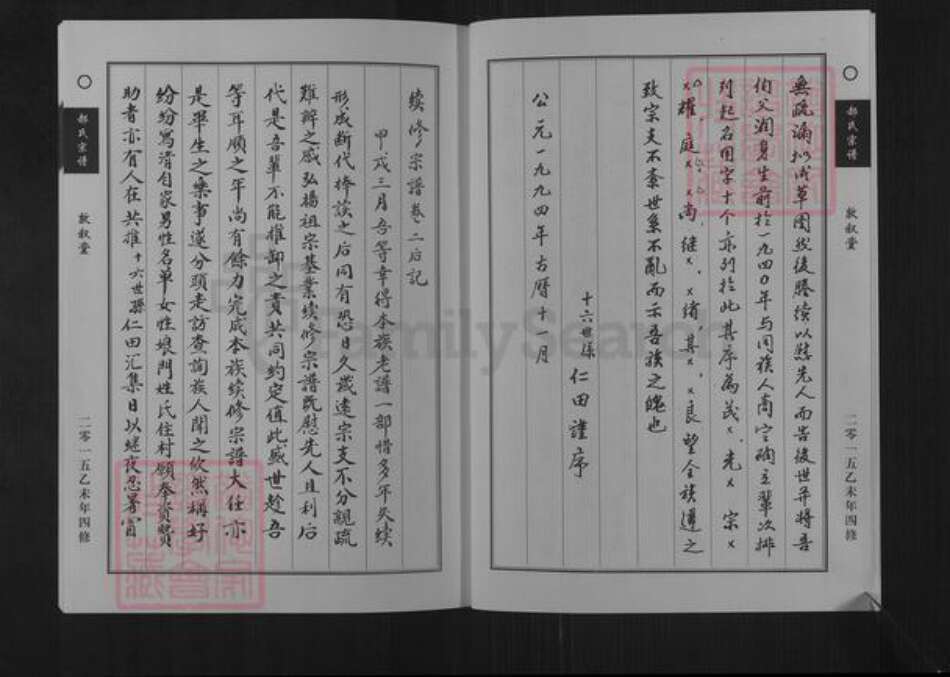 無疏漏拟成草图然後謄续以慰先人而告後世并將吾
伯父润身生前於一九四〇年与同族人商定确立輩次排
列起名用字十个亦列於此其序為茂×、光×、宗×
×耀、庭×、×尚、继×、×绪、其×、×良望全族遵之
致宗支不紊世系不亂而示吾族之魄也
十六世孫 仁田謹序
公元一九九四年古曆十一月
郝氏宗谱
敦叙堂
二零一五乙未年四修
续修宗譜卷二后記
甲戌三月吾等幸得本族老譜一部惜多年失续
形成断代捧读之后同有恐日久歲遠宗支不分親疏
難辨之感弘揚祖宗基業续修宗譜既慰先人且利后
代是吾輩不能推卸之責共同約定值此盛世趁吾
等耳順之年尚有餘力完成本族续修宗譜大任亦
是畢生之樂事遂分頭走訪查詢族人聞之欣然稱好
纷纷寫清自家男性名单女性娘門姓氏住村願奉資費
助者亦有人在共推十六世孫仁田汇集日以继夜忍暑
郝氏宗谱
敦叙堂
二零一五乙未年四修
FamilySearch